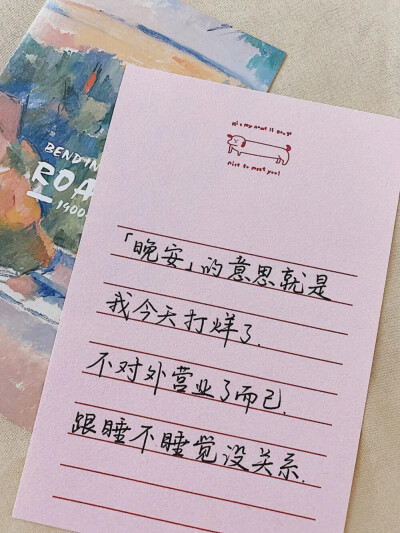 BENDIN
ROA
1900-
Hi! my name is
nice to meet you!
「晚安」的意思就是
我今天打烊了.
不对外营业了而已.
跟睡不睡觉没关系.